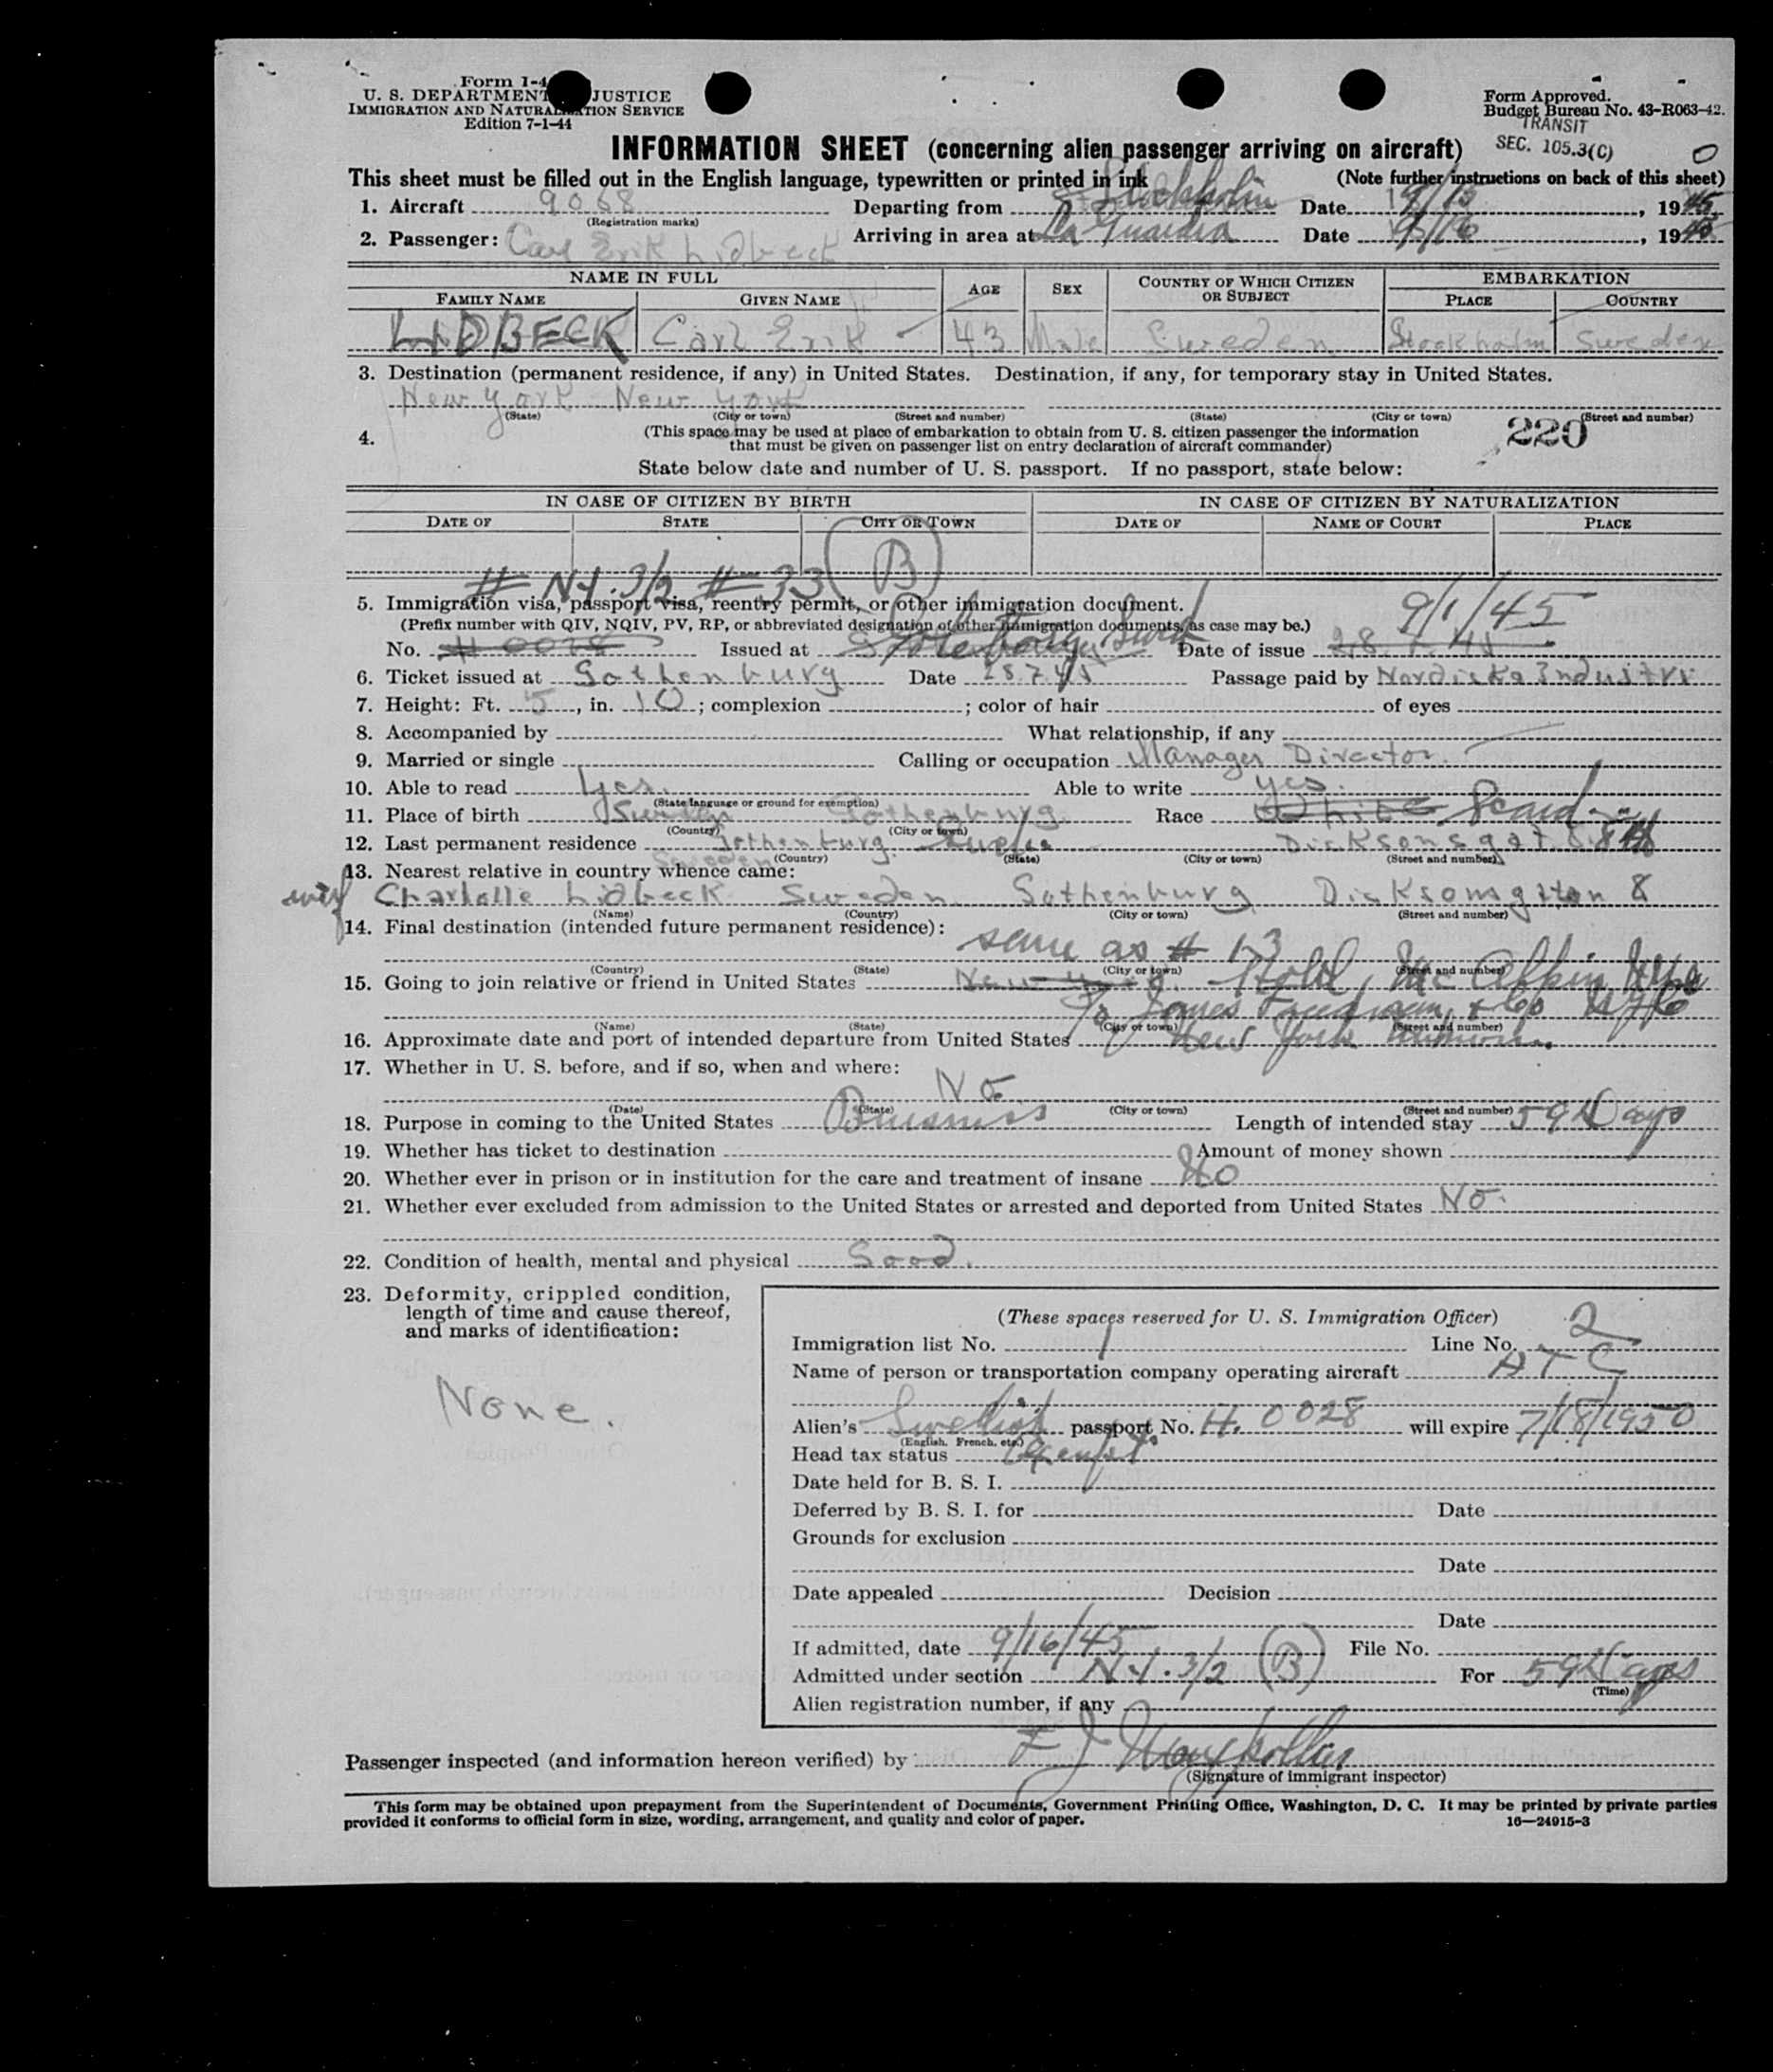 Form I-4
U. S. DEPARTMENT JUSTICE
IMMIGRATION AND NATURALIZATION SERVICE
Edition 7-1-44
Form Approved.
Budget Bureau No. 43-R063-42.
TRANSIT
SEC. 105.3(C)
INFORMATION SHEET (concerning alien passenger arriving on aircraft)
0
This sheet must be filled out in the English language, typewritten or printed in ink (Note further instructions on back of this sheet)
1. Aircraft 9068 Departing from Stockholm Date 9/15, 1945
(Registration marks)
2. Passenger: Carl Erik Lidbeck Arriving in area at La Guardia Date 9/16, 1945
NAME IN FULL AGE SEX COUNTRY OF WHICH CITIZEN OR SUBJECT EMBARKATION
FAMILY NAME GIVEN NAME PLACE COUNTRY
LIDBECK Carl Erik 43 Male Sweden Stockholm Sweden
3. Destination (permanent residence, if any) in United States. Destination, if any, for temporary stay in United States.
New York New York
(State) (City or town) (Street and number) (State) (City or town) (Street and number)
220
4. (This space may be used at place of embarkation to obtain from U. S. citizen passenger the information
that must be given on passenger list on entry declaration of aircraft commander)
State below date and number of U. S. passport. If no passport, state below:
IN CASE OF CITIZEN BY BIRTH IN CASE OF CITIZEN BY NATURALIZATION
DATE OF STATE CITY OR TOWN DATE OF NAME OF COURT PLACE
# N-1. 3/2 # 33 (B)
5. Immigration visa, passport visa, reentry permit, or other immigration document. 9/1/45
(Prefix number with QIV, NQIV, PV, RP, or abbreviated designation of other immigration documents, as case may be.)
No. # 0028 Issued at Date of issue 28.7.45
6. Ticket issued at Gothenburg Date 28.7.45 Passage paid by Nordiska Industri
7. Height: Ft. 5, in. 10; complexion ; color of hair of eyes
8. Accompanied by What relationship, if any
9. Married or single Calling or occupation Manager Director.
10. Able to read Yes. Able to write yes.
(State language or ground for exemption)
11. Place of birth Sweden Gothenburg Race White Scand
(Country) (City or town)
12. Last permanent residence Gothenburg. Dicksonsgat. 8
Sweden (Country) (State) (City or town) (Street and number)
13. Nearest relative in country whence came:
wife Charlotte Lidbeck Sweden Gothenburg Dicksonsgatan 8
(Name) (Country) (City or town) (Street and number)
14. Final destination (intended future permanent residence):
same as # 13
(Country) (State) (City or town) (Street and number)
15. Going to join relative or friend in United States New York. Hotel Mc Alpin NYC
To James Freedman & Co NYC
(Name) (State) (City or town) (Street and number)
16. Approximate date and port of intended departure from United States New York
17. Whether in U. S. before, and if so, when and where:
No
(Date) (State) (City or town) (Street and number)
18. Purpose in coming to the United States Business Length of intended stay 59 Days
19. Whether has ticket to destination Amount of money shown
20. Whether ever in prison or in institution for the care and treatment of insane No
21. Whether ever excluded from admission to the United States or arrested and deported from United States No.
22. Condition of health, mental and physical Good.
23. Deformity, crippled condition,
length of time and cause thereof,
and marks of identification:
None.
(These spaces reserved for U. S. Immigration Officer)
Immigration list No. 1 Line No. 2
Name of person or transportation company operating aircraft ATC
Alien's Swedish passport No. H. 0028 will expire 7/18/1950
(English, French, etc.)
Head tax status Exempt
Date held for B. S. I.
Deferred by B. S. I. for Date
Grounds for exclusion
Date
Date appealed Decision
Date
If admitted, date 9/16/45 File No.
Admitted under section N-1. 3/2 (B) For 59 Days
(Time)
Alien registration number, if any
Passenger inspected (and information hereon verified) by F J
(Signature of immigrant inspector)
This form may be obtained upon prepayment from the Superintendent of Documents, Government Printing Office, Washington, D. C. It may be printed by private parties
provided it conforms to official form in size, wording, arrangement, and quality and color of paper. 16—24915-3